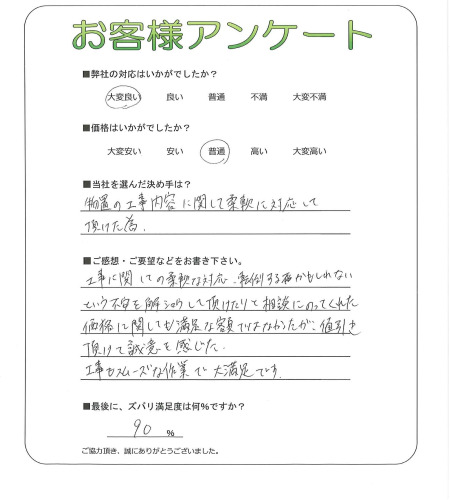 お客様アンケート
■弊社の対応はいかがでしたか？
大変良い 良い 普通 不満 大変不満
■価格はいかがでしたか？
大変安い 安い 普通 高い 大変高い
■当社を選んだ決め手は？
物置の工事内容に関して柔軟に対応して
頂けた為.
■ご感想・ご要望などをお書き下さい。
工事に関しての柔軟な対応.転倒するかもしれない
という不安を解消して頂けたりと相談にのってくれた
価格に関しても満足な額ではなかったが、値引き
頂けて誠意を感じた.
工事もスムーズな作業で大満足です.
■最後に、ズバリ満足度は何%ですか？
90 %
ご協力頂き、誠にありがとうございました。